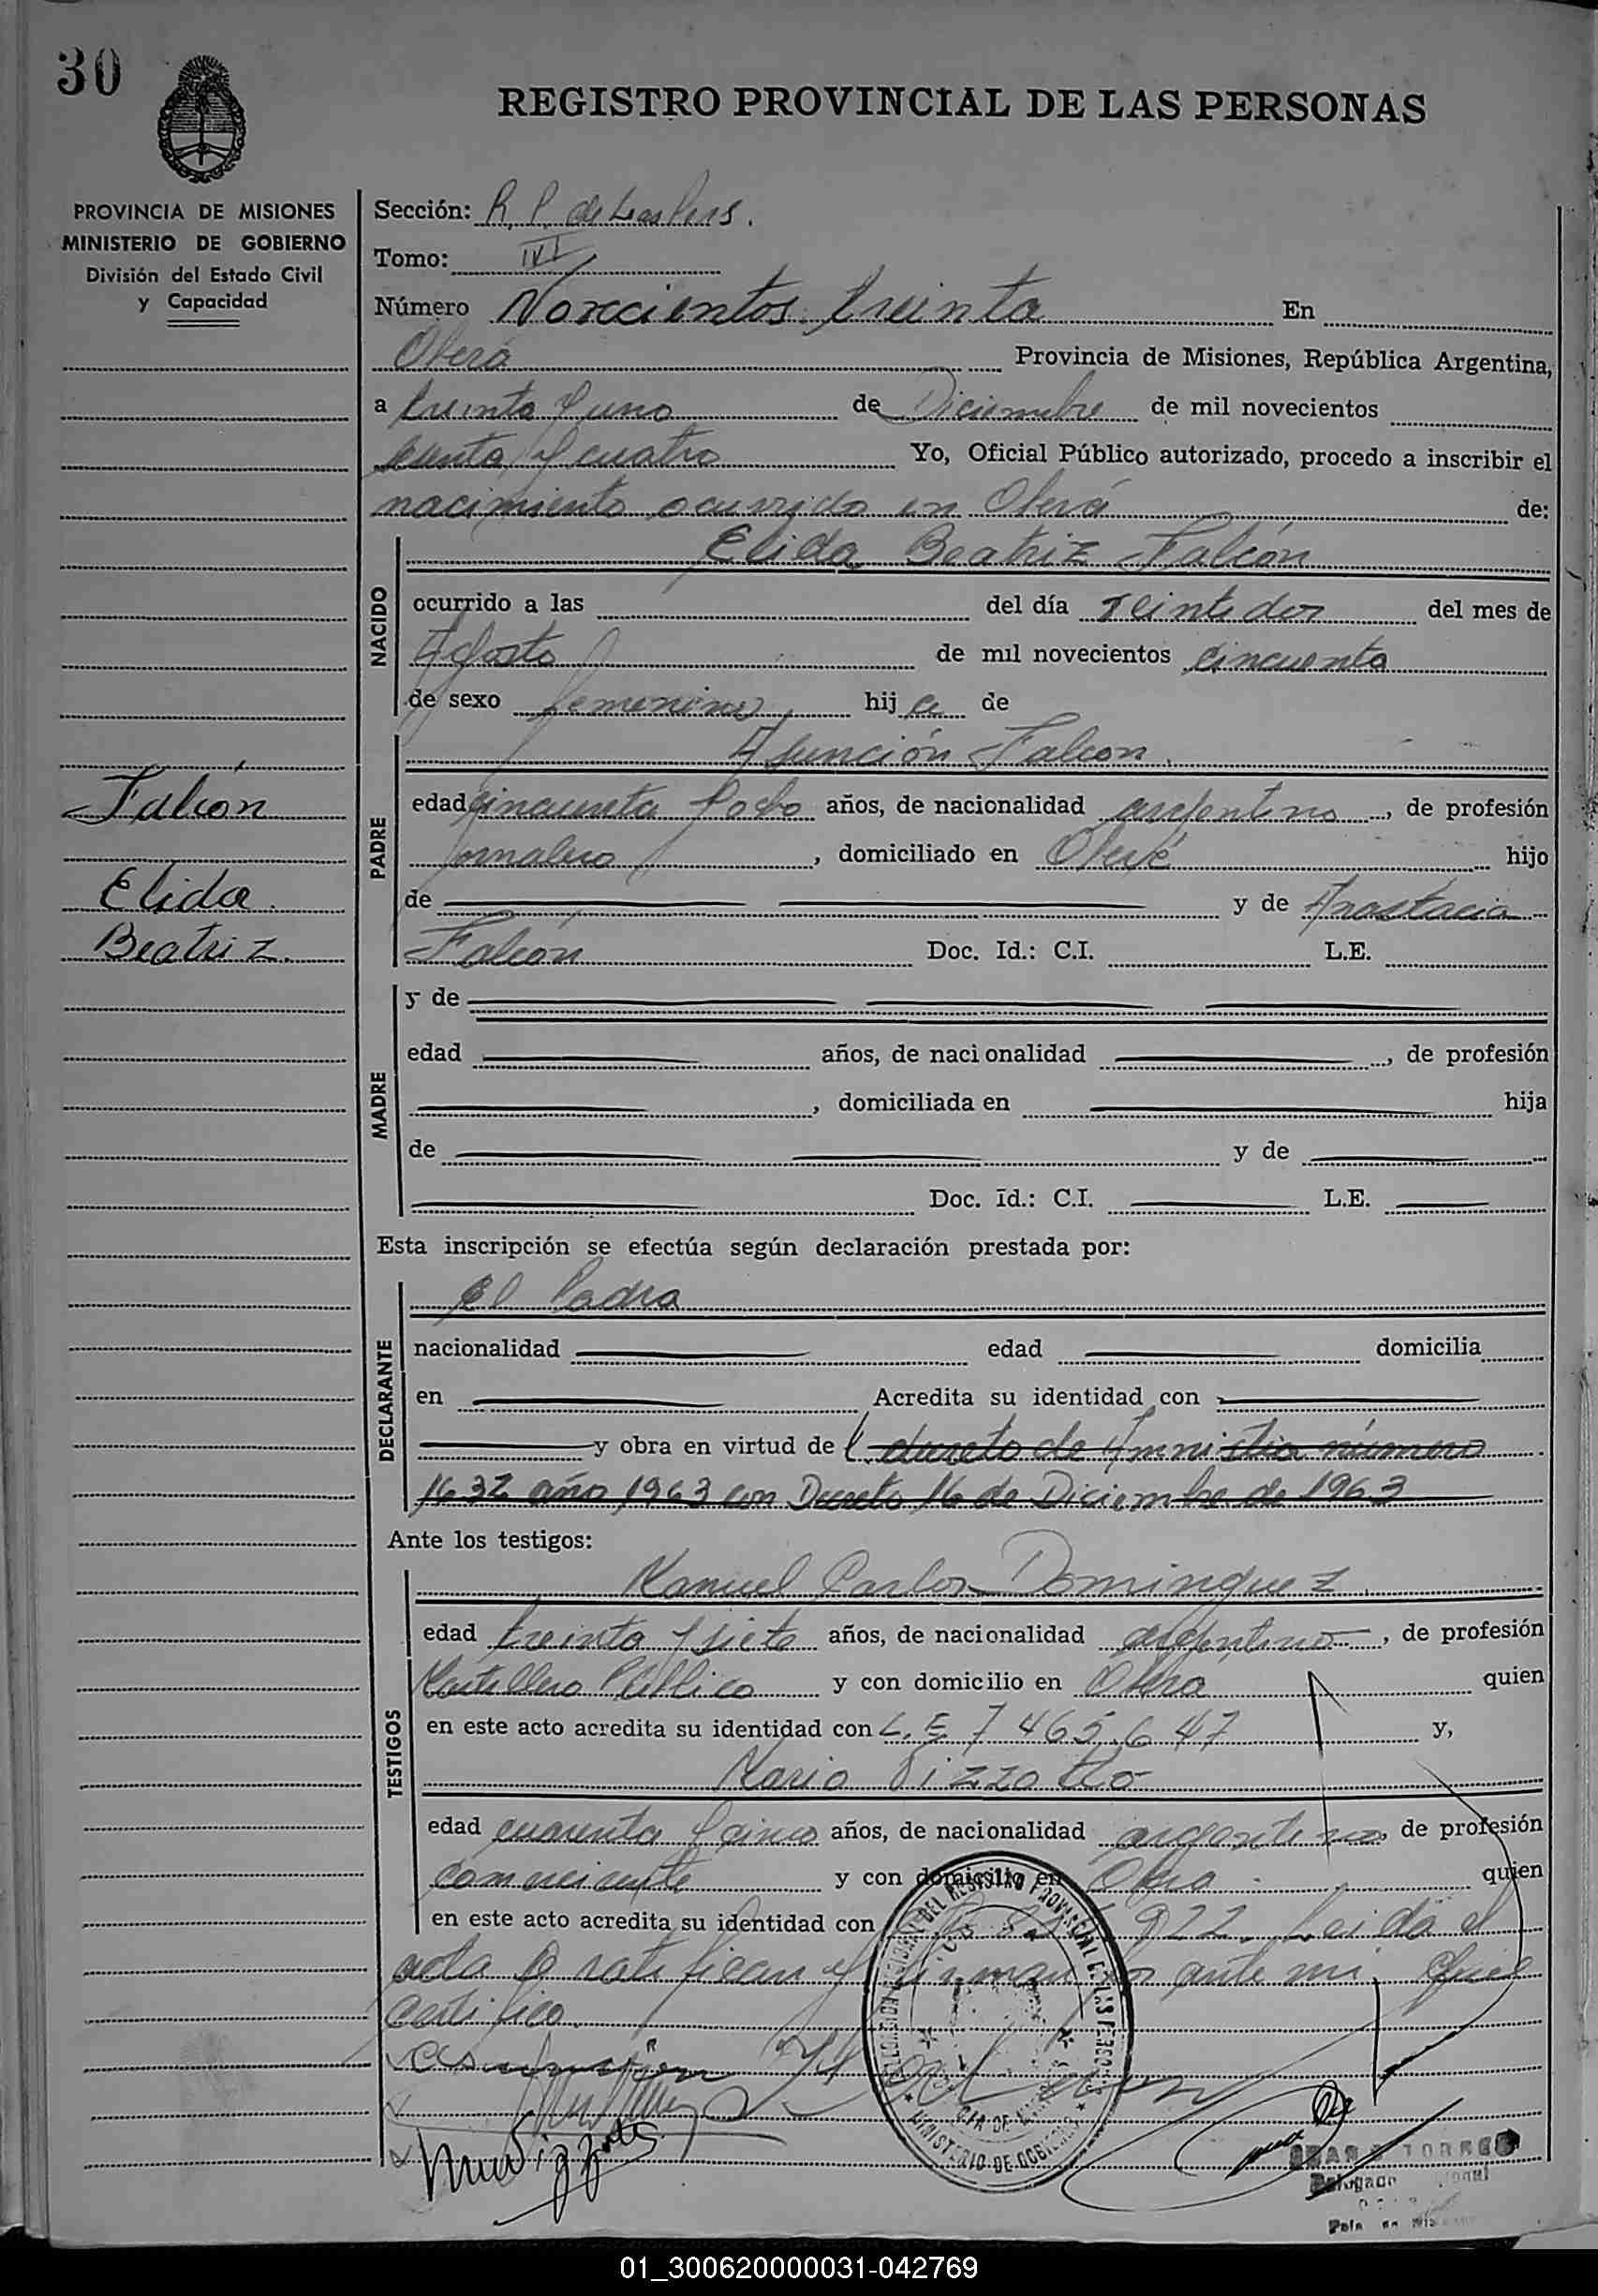 30
REGISTRO PROVINCIAL DE LAS PERSONAS
PROVINCIA DE MISIONES
MINISTERIO DE GOBIERNO
División del Estado Civil
y Capacidad
Sección: R. P. de Las Pers.
Tomo: IVI
Número Novecientos treinta En
Oberá Provincia de Misiones, República Argentina,
a treinta y uno de Diciembre de mil novecientos
sesenta y cuatro Yo, Oficial Público autorizado, procedo a inscribir el
nacimiento ocurrido en Oberá de:
Elida Beatriz Falcón
NACIDO
ocurrido a las del día veintidos del mes de
Agosto de mil novecientos cincuenta
de sexo femenino hija de
Asunción Falcon.
Falcón
Elida
Beatriz.
PADRE
edad cincuenta y ocho años, de nacionalidad argentino, de profesión
jornalero, domiciliado en Oberá hijo
de y de Anastacia
Falcón Doc. Id.: C.I. L.E.
MADRE
y de
edad años, de nacionalidad, de profesión
, domiciliada en hija
de y de
Doc. Id.: C.I. L.E.
Esta inscripción se efectúa según declaración prestada por:
DECLARANTE
El Padre
nacionalidad edad domicilia
en Acredita su identidad con
y obra en virtud del decreto de Amnistia número
1632 año 1963 con Decreto 16 de Diciembre de 1963
Ante los testigos:
TESTIGOS
Manuel Carlos Dominguez.
edad treinta y siete años, de nacionalidad argentino, de profesión
Martillero Público y con domicilio en Oberá quien
en este acto acredita su identidad con L.E 7 465.647 y,
Mario Pizzotto
edad cuarenta y cinco años, de nacionalidad argentino, de profesión
comerciante y con domicilio en Oberá quien
en este acto acredita su identidad con 922. Leida el
acta la ratifican y firman por ante mi, que
certifico.
asunsion Falcon
MINISTERIO DE GOBIERNO
01_300620000031-042769